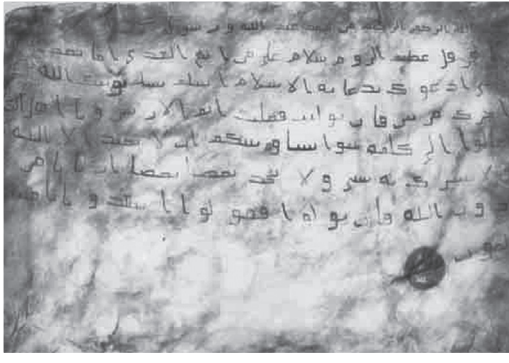 الله الرحمن الرحيم من محمد عبد الله ورسوله
هرقل عظيم الروم سلام على من اتبع الهدى اما بعد
ادعوك بدعاية الاسلام اسلم تسلم يوتك الله
اجرك مرتين فان توليت فعليك اثم الاريسين ويا اهل
تعالوا الى كلمة سوا بيننا وبينكم ان لا نعبد الا الله
ولا نشرك به شي ولا يتخذ بعضنا بعضا اربابا من
دون الله فان تولوا فقولوا اشهدوا بانا